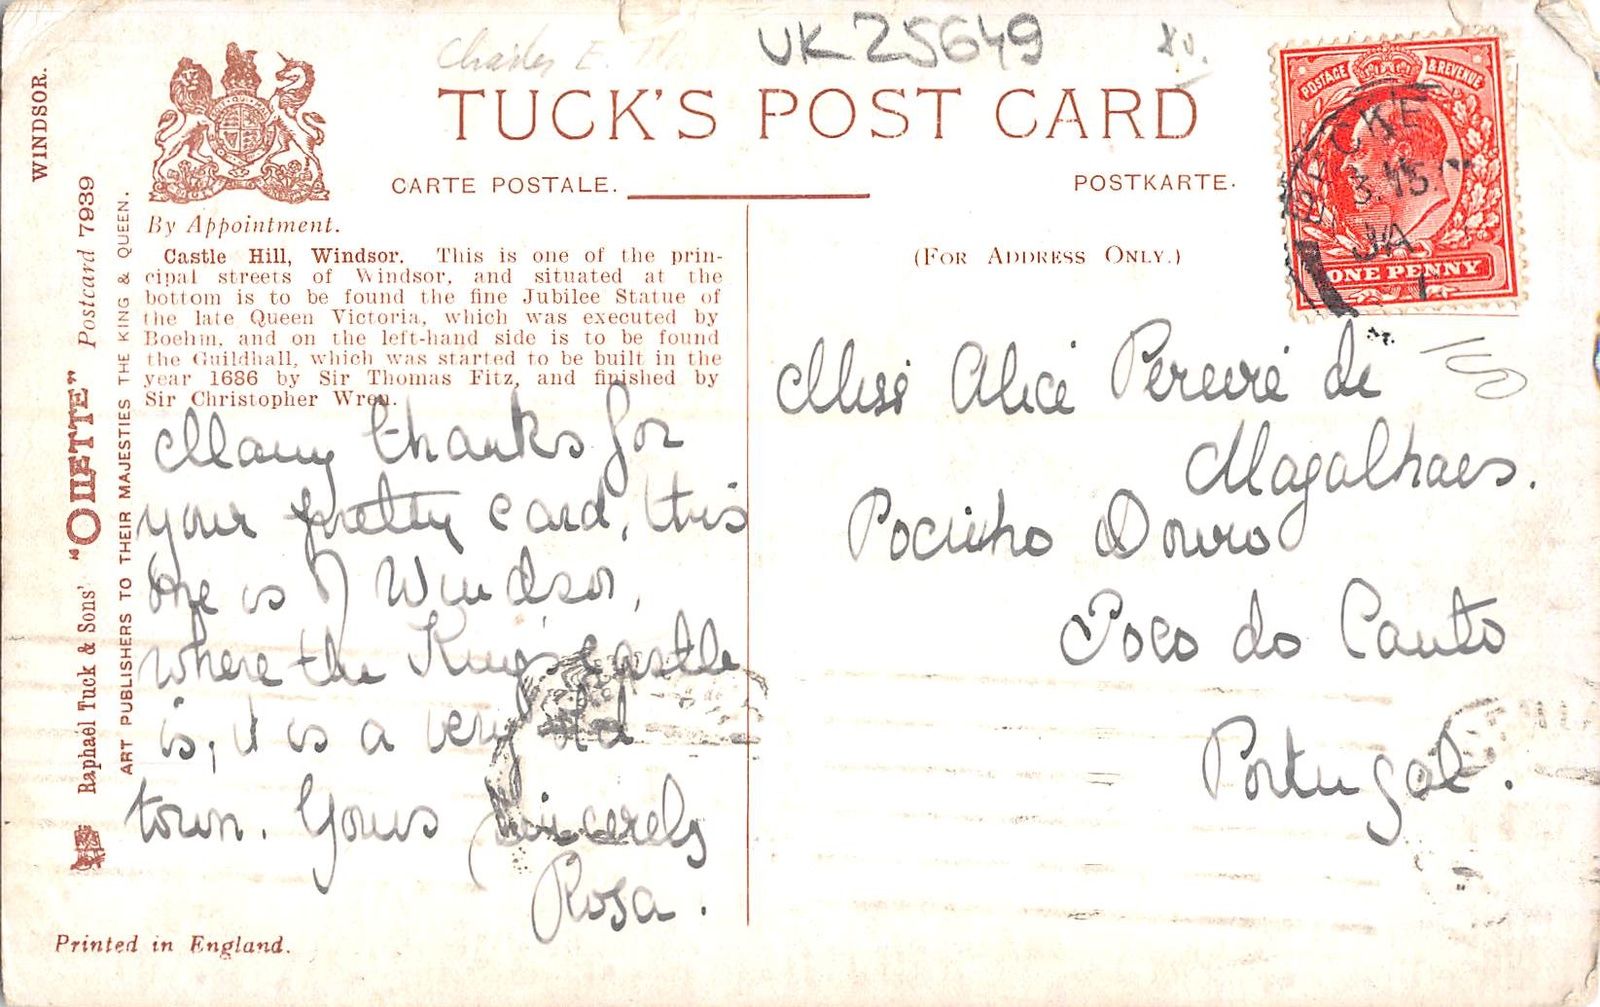 UK25649
TUCK'S POST CARD
CARTE POSTALE.
POSTKARTE.
WINDSOR.
Raphael Tuck & Sons' "OILETTE" Postcard 7939
ART PUBLISHERS TO THEIR MAJESTIES THE KING & QUEEN.
By Appointment.
Castle Hill, Windsor. This is one of the prin-
cipal streets of Windsor, and situated at the
bottom is to be found the fine Jubilee Statue of
the late Queen Victoria, which was executed by
Boehm, and on the left-hand side is to be found
the Guildhall, which was started to be built in the
year 1686 by Sir Thomas Fitz, and finished by
Sir Christopher Wren.
Many thanks for
your pretty card, this
one is of Windsor,
where the King's castle
is, it is a very old
town. Yours sincerely
Rosa.
Printed in England.
(FOR ADDRESS ONLY.)
POSTAGE & REVENUE
ONE PENNY
Miss Alice Pereire de
Magalhaes.
Pocinho Douro
Poco do Canto
Portugal.